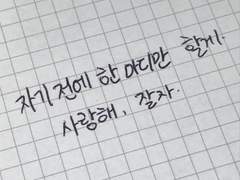 자기 전에 한 마디만 할게.
사랑해, 잘자.